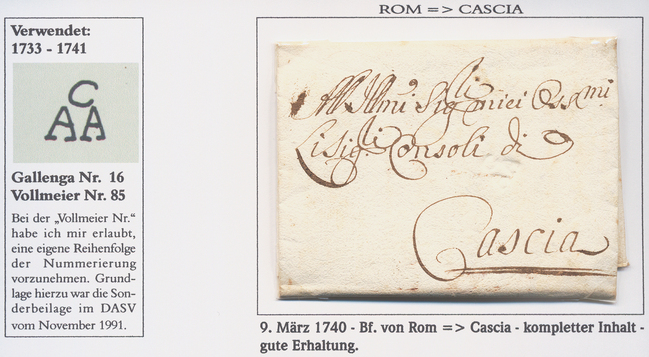 ROM => CASCIA
Verwendet:
1733 - 1741
C
AA
Gallenga Nr. 16
Vollmeier Nr. 85
Bei der „Vollmeier Nr.“
habe ich mir erlaubt,
eine eigene Reihenfolge
der Nummerierung
vorzunehmen. Grund-
lage hierzu war die Son-
derbeilage im DASV
vom November 1991.
Consoli di
Cascia
9. März 1740 - Bf. von Rom => Cascia - kompletter Inhalt -
gute Erhaltung.